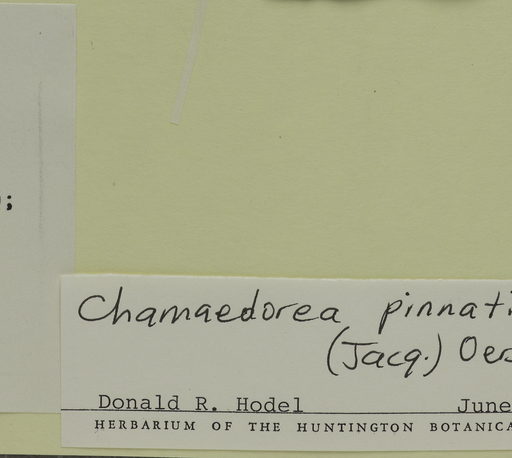 ;
Chamaedorea pinnati
(Jacq.) Oers
Donald R. Hodel June
HERBARIUM OF THE HUNTINGTON BOTANICA